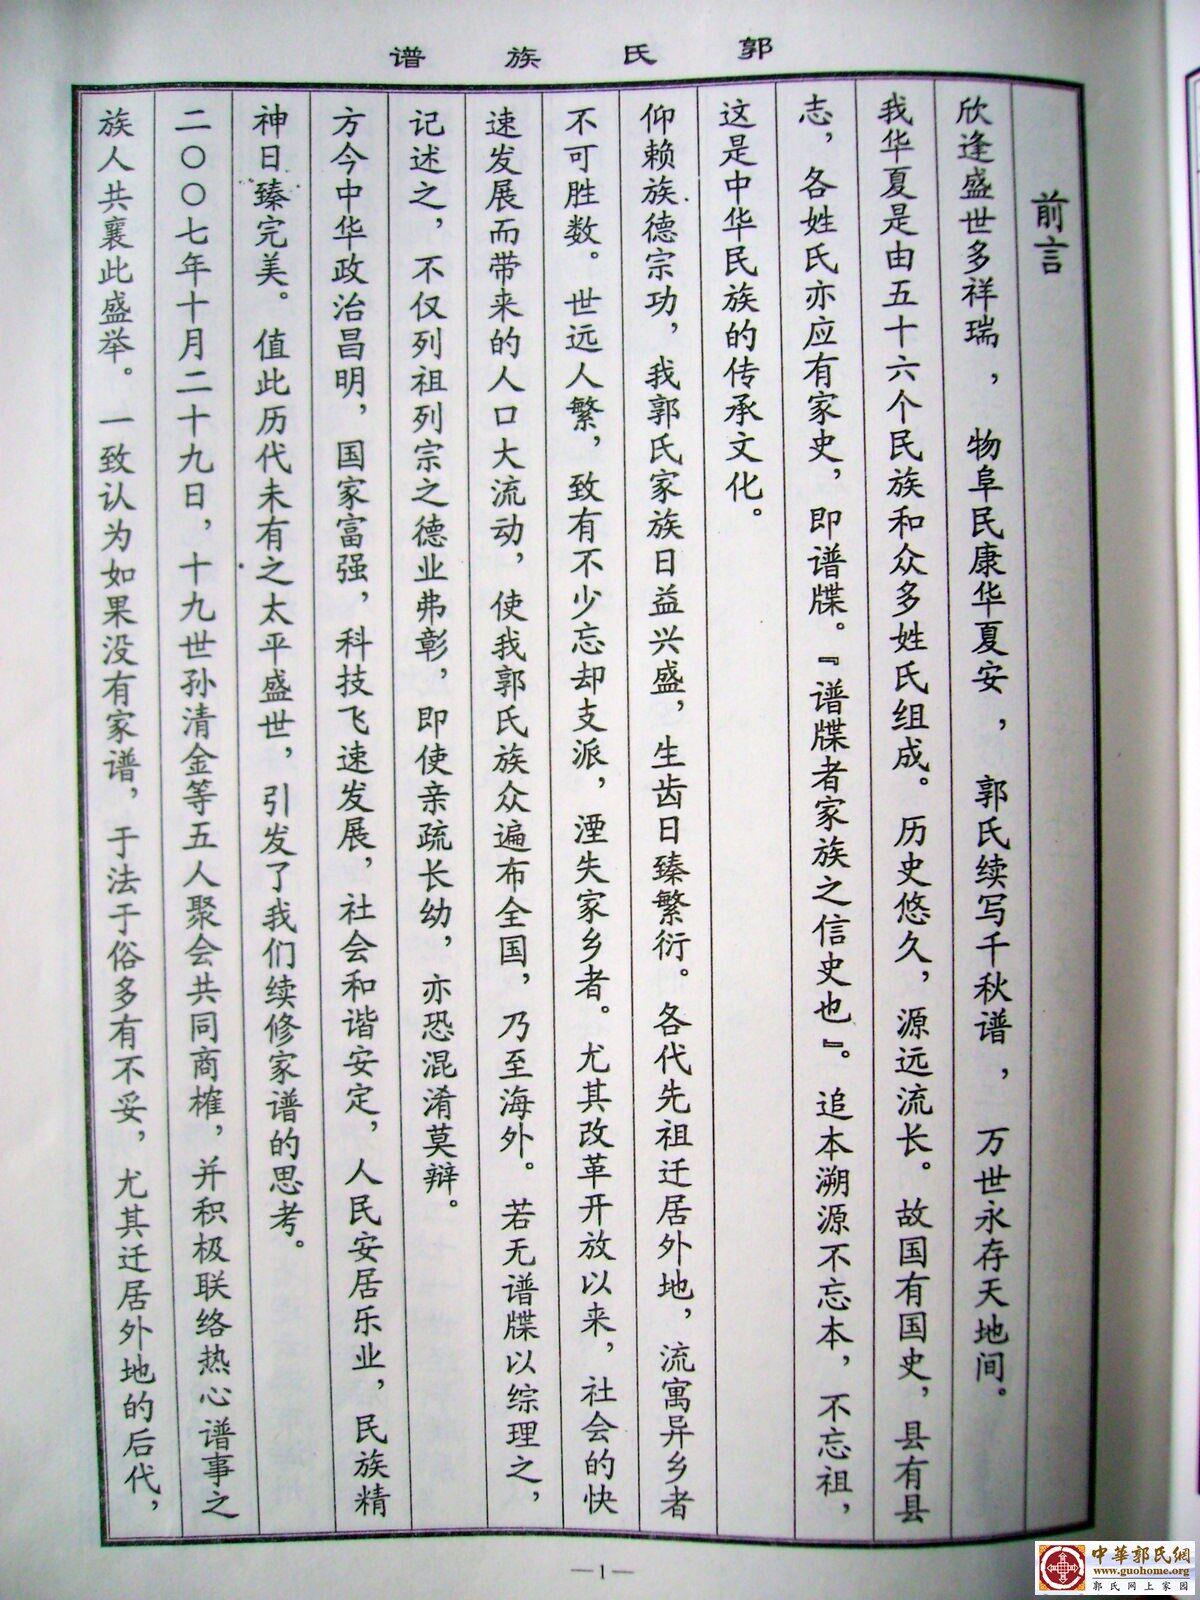 郭氏族谱
前言
欣逢盛世多祥瑞，物阜民康华夏安，郭氏续写千秋谱，万世永存天地间。
我华夏是由五十六个民族和众多姓氏组成。历史悠久，源远流长。故国有国史，县有县
志，各姓氏亦应有家史，即谱牒。『谱牒者家族之信史也』。追本溯源不忘本，不忘祖，
这是中华民族的传承文化。
仰赖族德宗功，我郭氏家族日益兴盛，生齿日臻繁衍。各代先祖迁居外地，流寓异乡者
不可胜数。世远人繁，致有不少忘却支派，湮失家乡者。尤其改革开放以来，社会的快
速发展而带来的人口大流动，使我郭氏族众遍布全国，乃至海外。若无谱牒以综理之，
记述之，不仅列祖列宗之德业弗彰，即使亲疏长幼，亦恐混淆莫辩。
方今中华政治昌明，国家富强，科技飞速发展，社会和谐安定，人民安居乐业，民族精
神日臻完美。值此历代未有之太平盛世，引发了我们续修家谱的思考。
二〇〇七年十月二十九日，十九世孙清金等五人聚会共同商榷，并积极联络热心谱事之
族人共襄此盛举。一致认为如果没有家谱，于法于俗多有不妥，尤其迁居外地的后代，
—1—
中華郭氏網
www.guohome.org
郭氏网上家园